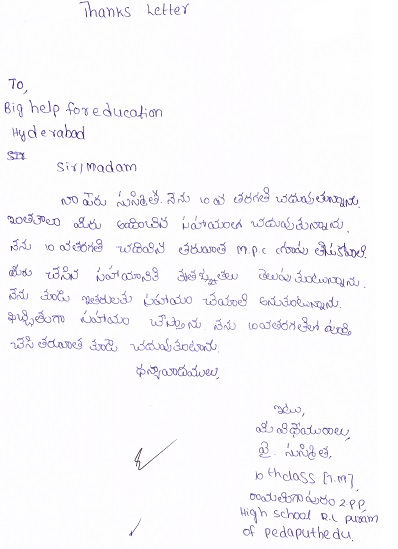 Thanks Letter
To,
Big help for education
Hyderabad
Sir/Madam
నా పేరు సుస్మిత. నేను 10 వ తరగతి చదువుతున్నాను.
ఇంతకాలం మీరు అందించిన సహాయంగా చదువుతున్నాను.
నేను 10 వతరగతి చదివిన తరువాత M.P.C గ్రూపు తీసుకోవాలి.
మీరు చేసిన సహాయానికి కృతజ్ఞతలు తెలుపు తుంటున్నాను.
నేను కూడా ఇతరులకు సహాయం చేయాలి అనుకుంటున్నాను.
ఖచ్చితంగా సహాయం చేస్తాను నేను 10వతరగతి పూర్తి
చేసి తరువాత కూడా చదువుకుంటాను.
ధన్యవాదములు,
ఇట్లు,
మీ విధేయురాలు,
సుస్మిత.
10th class [T.M],
Z.P.P.
High school R.L puram
of pedaputhedu.